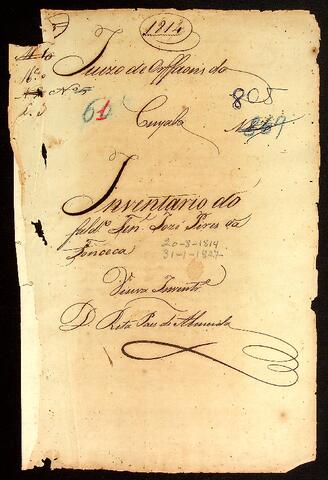 1814
Juizo de Orffaons da
Cuyaba
805
61
Inventario do
falldo Ten.e José Pires da
Fonceca
20-8-1814
31-1-1827
Viuva Invento
D. Rita Paes de Almeida